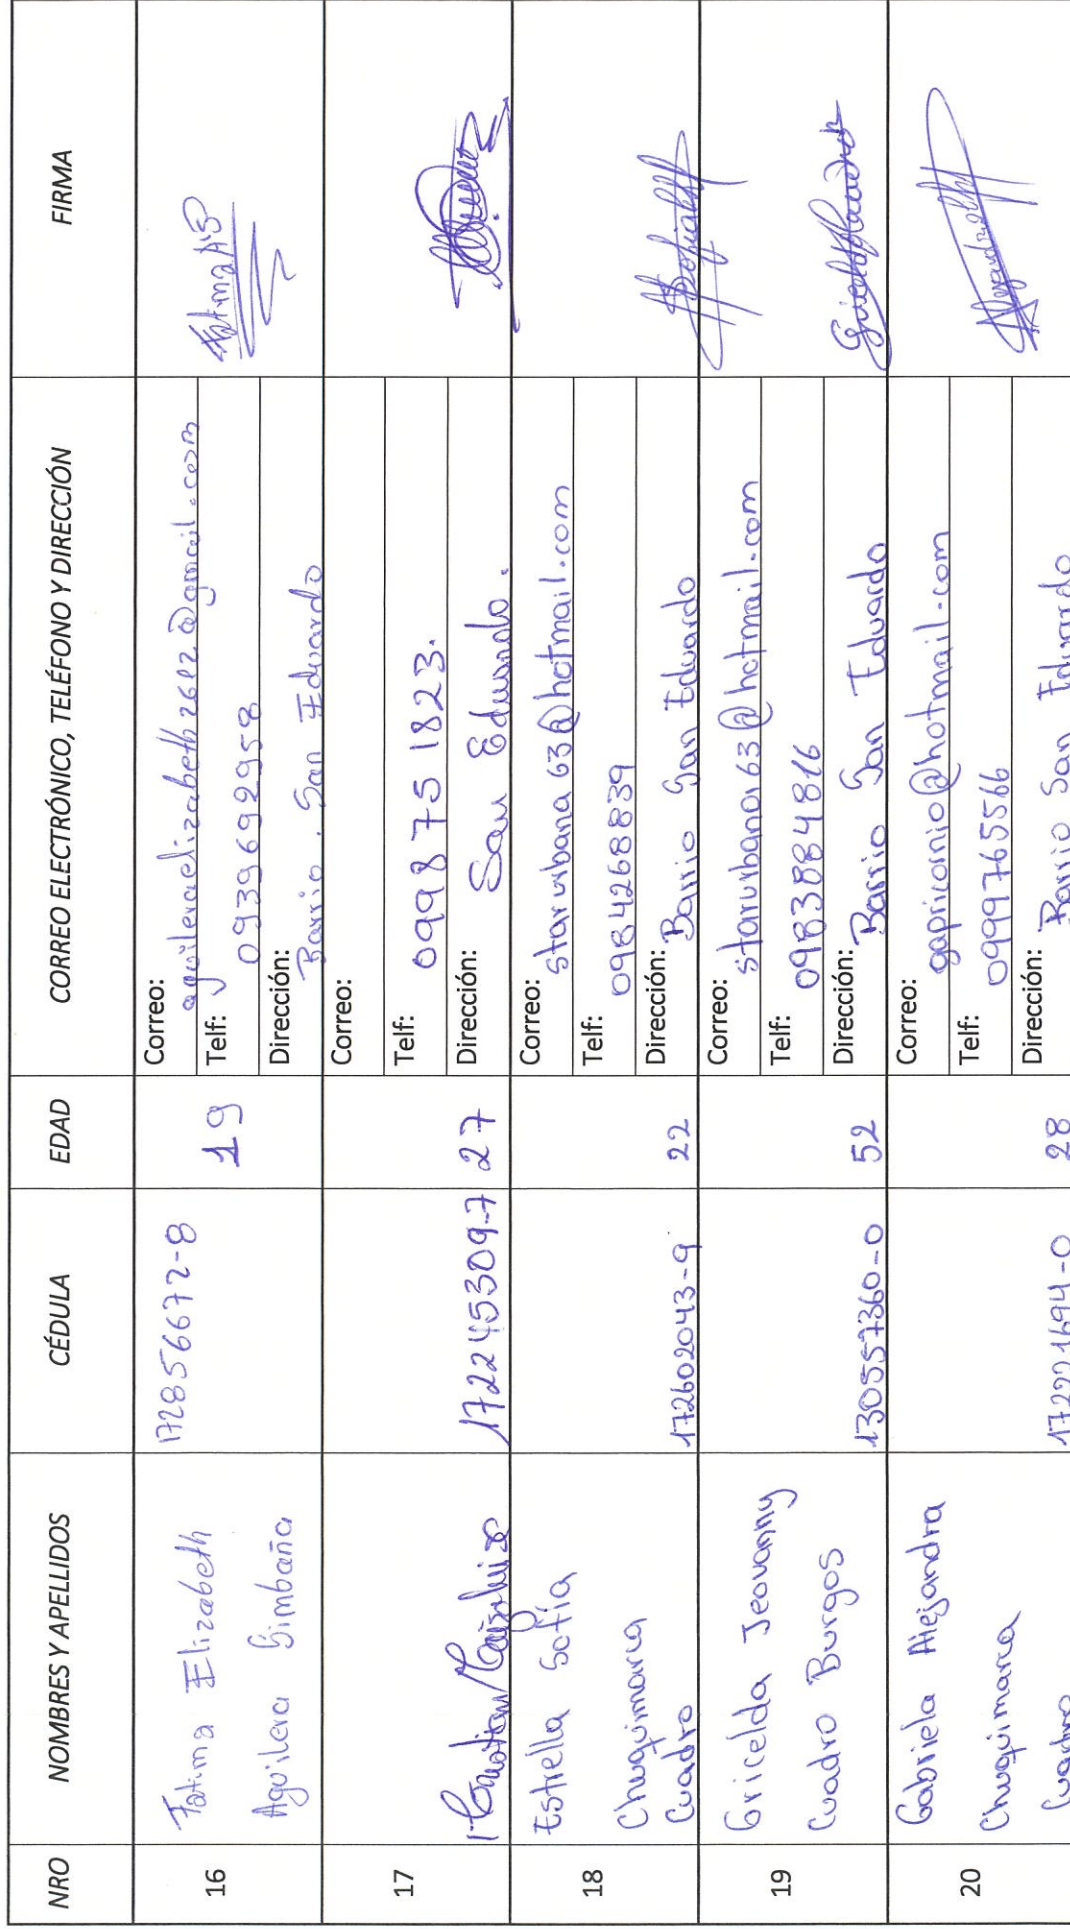 NRO NOMBRES Y APELLIDOS CÉDULA EDAD CORREO ELECTRÓNICO, TELÉFONO Y DIRECCIÓN FIRMA
16
Fatima Elizabeth
Aguilera Simbaña
172856672-8
19
Correo: aguileraelizabeth2612@gmail.com
Telf: 0939692958
Dirección: Barrio. San Eduardo
17
172245309-7
27
Correo:
Telf: 0998751823.
Dirección: San Eduardo.
18
Estrella Sofía
Chuquimarca
Cuadro
172602043-9
22
Correo: starurbana63@hotmail.com
Telf: 0984268839
Dirección: Barrio San Eduardo
19
Gricelda Jeovanny
Cuadro Burgos
130557360-0
52
Correo: starurbana63@hotmail.com
Telf: 0983884816
Dirección: Barrio San Eduardo
20
Gabriela Alejandra
Chuquimarca
Cuadro
172221694-0
28
Correo: gapricornio@hotmail.com
Telf: 0999765566
Dirección: Barrio San Eduardo